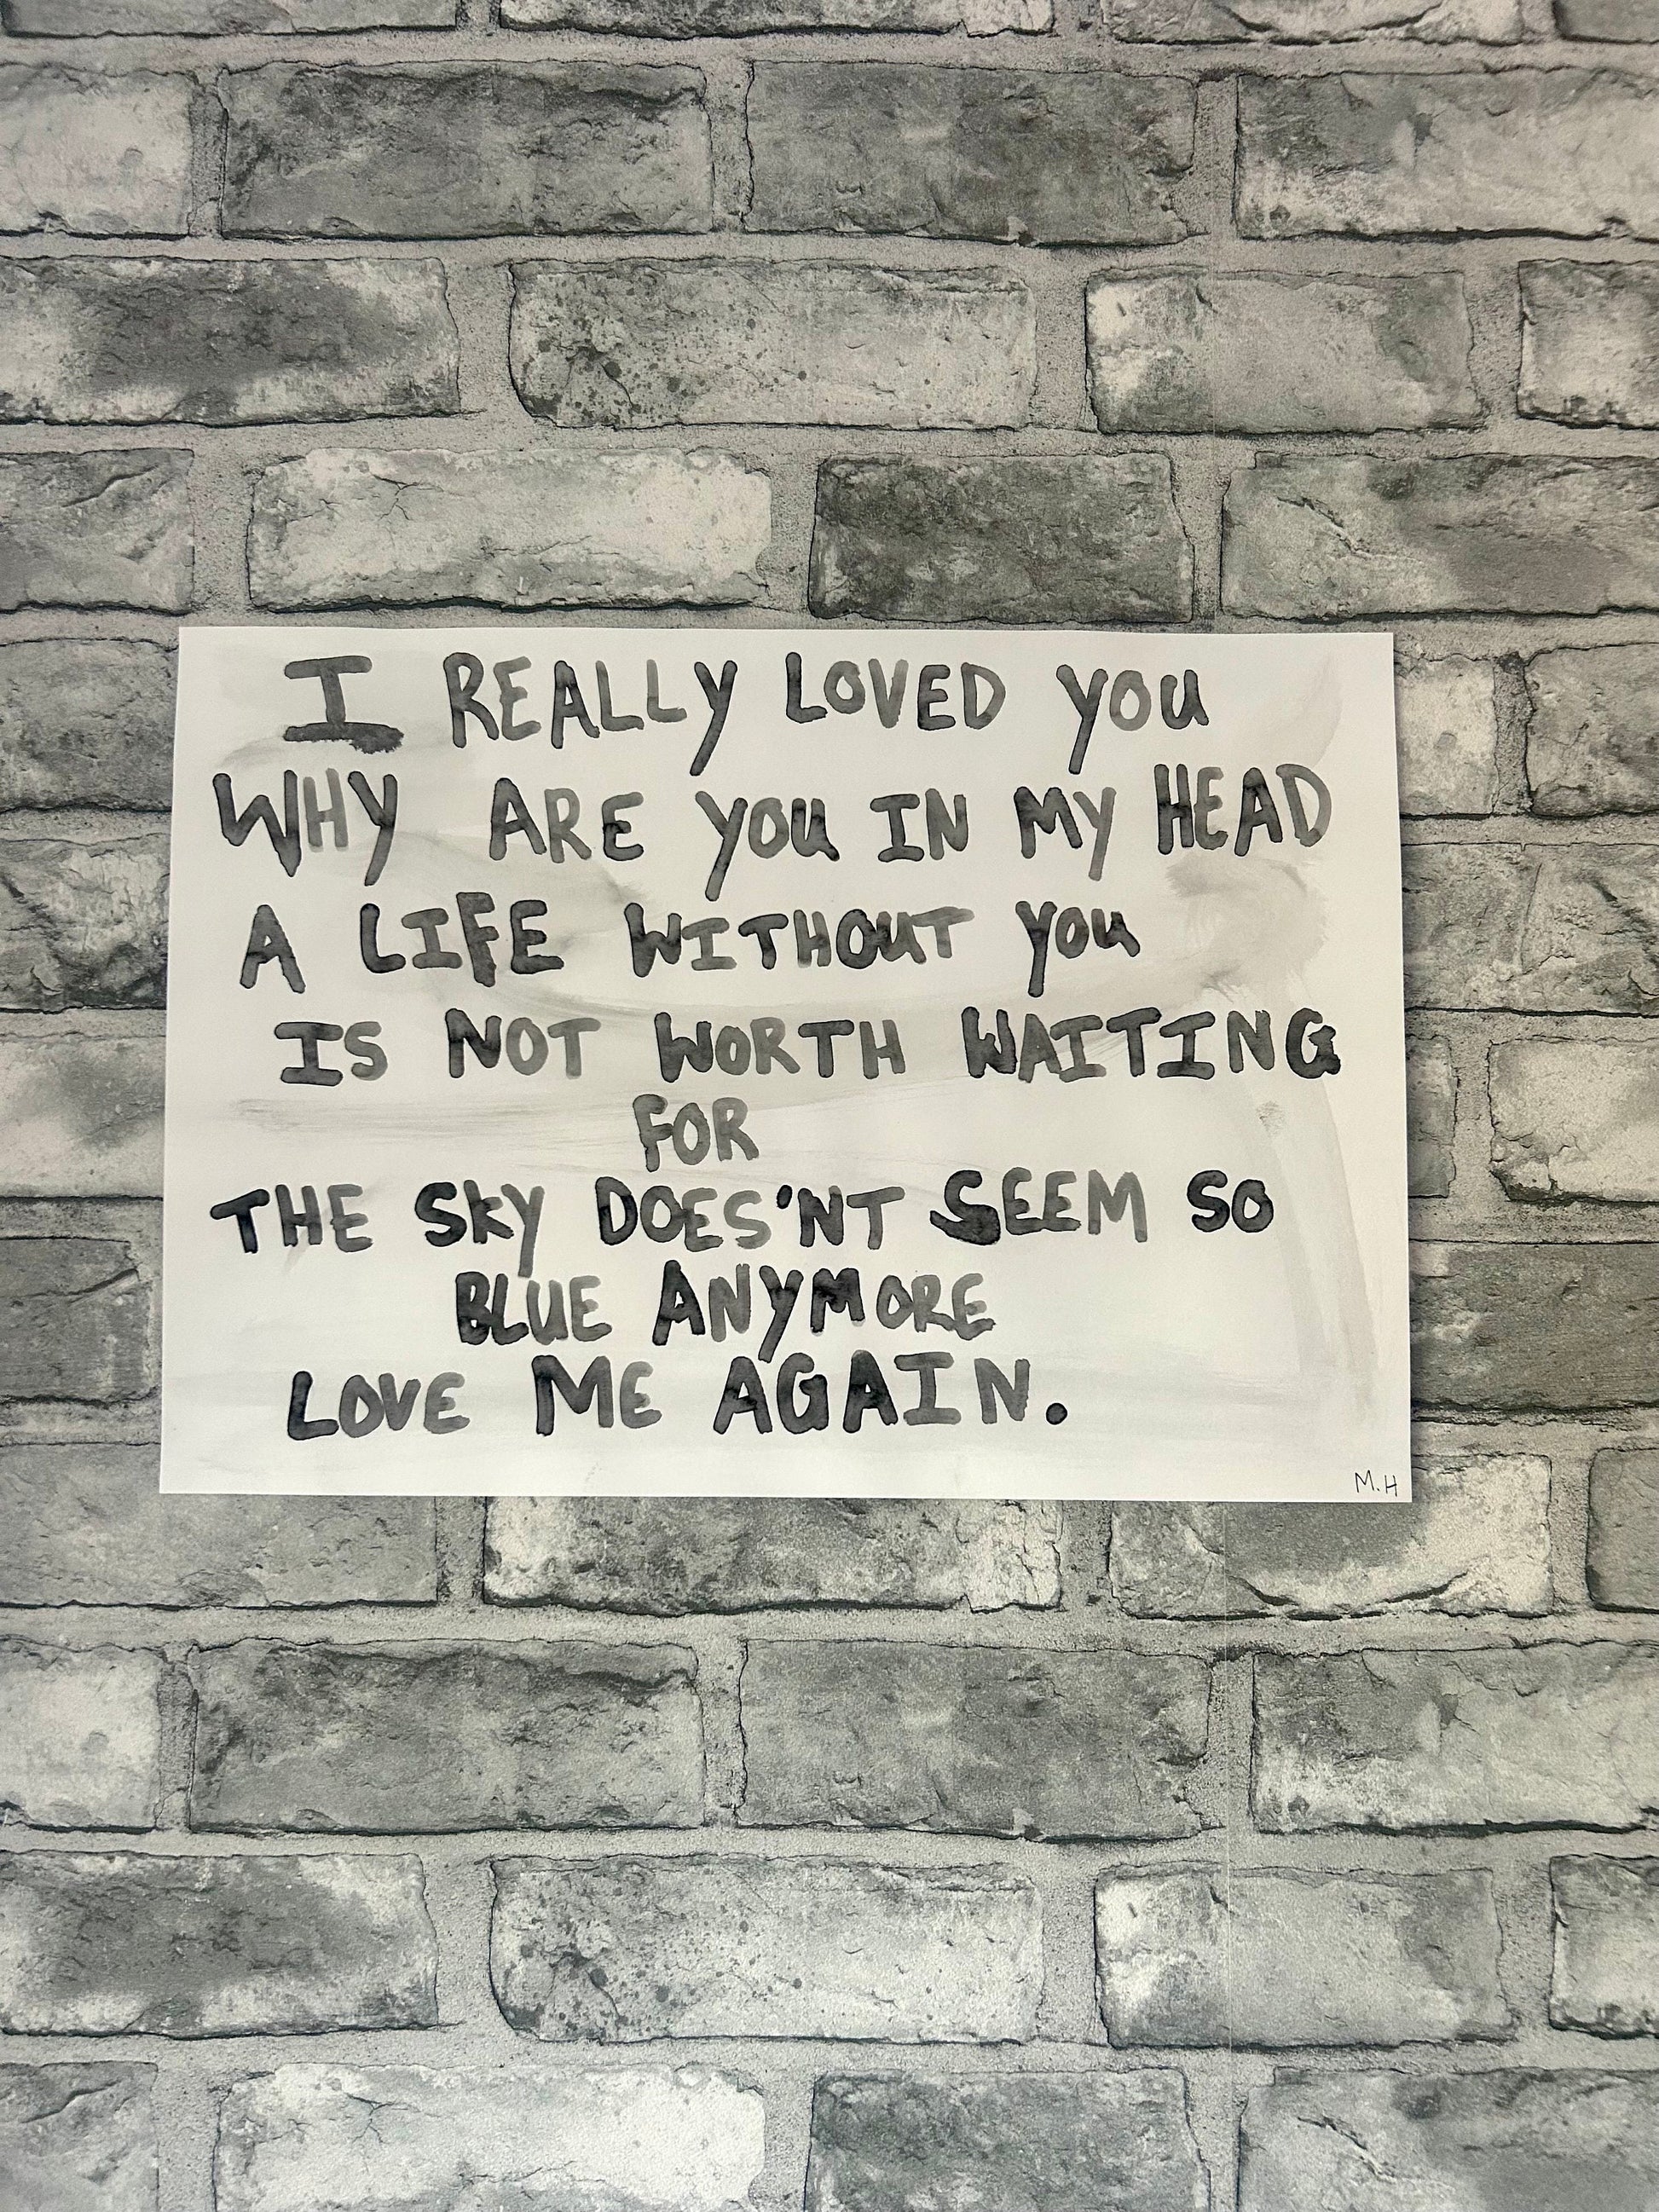 I REALLY LOVED YOU
WHY ARE YOU IN MY HEAD
A LIFE WITHOUT YOU
IS NOT WORTH WAITING
FOR
THE SKY DOES'NT SEEM SO
BLUE ANYMORE
LOVE ME AGAIN.
M.H